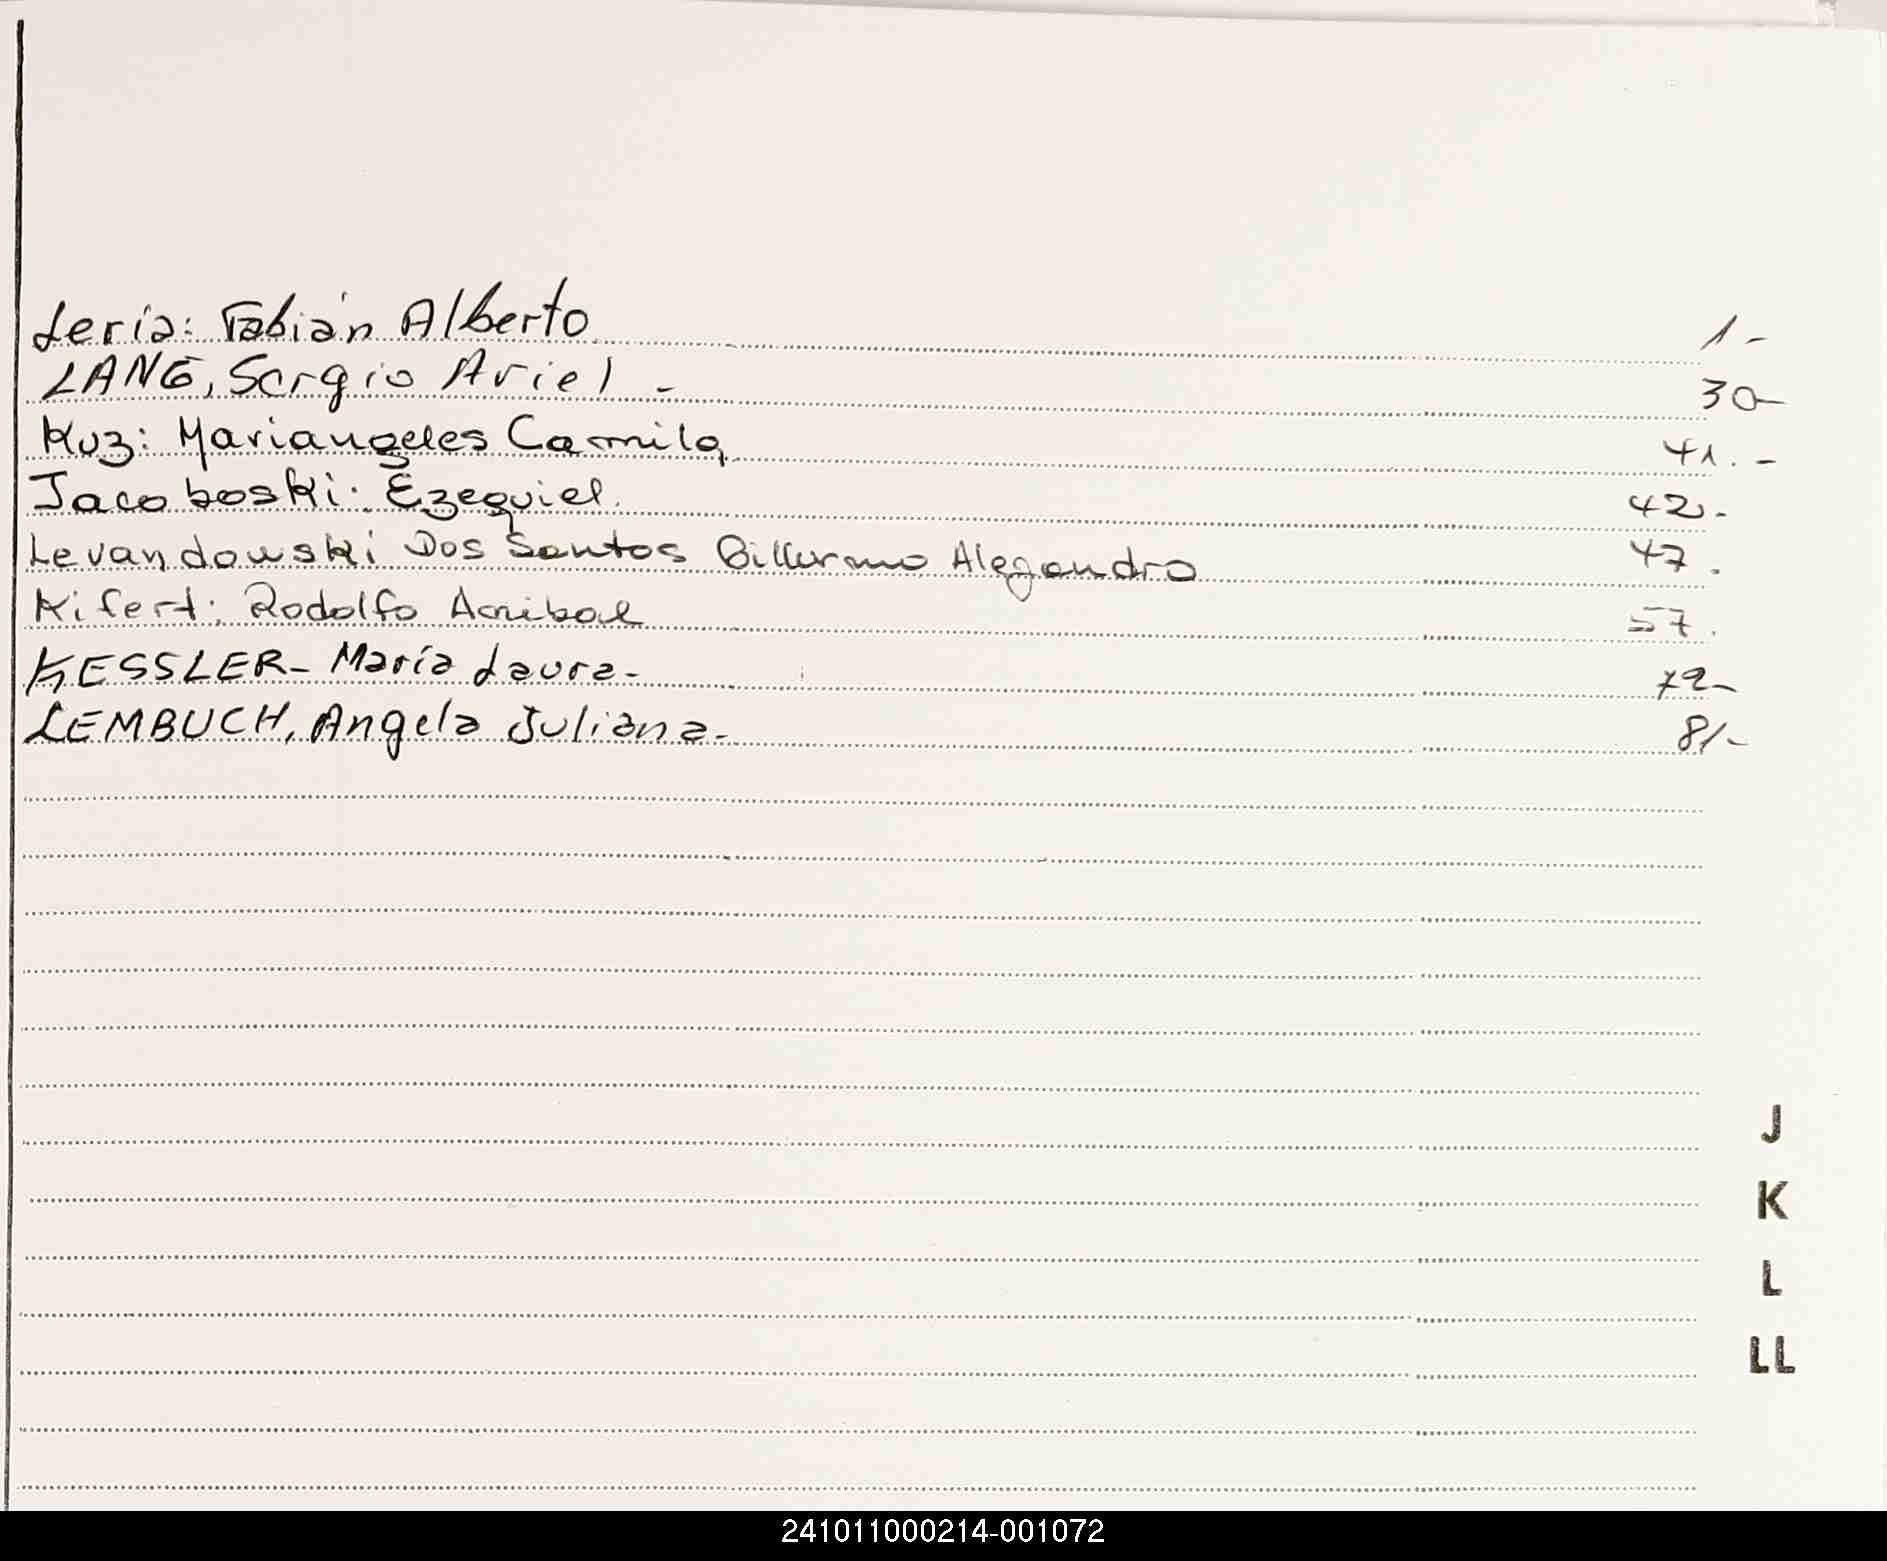 Leria: Fabián Alberto 1-
LANG, Sergio Ariel - 30-
Kuz: Mariangeles Camila 41.-
Jacoboski: Ezequiel. 42.-
Levandowski Dos Santos Gillermo Alejandro 47.
Kifert: Rodolfo Anibal 57.
KESSLER- María Laura- 72-
LEMBUCH, Angela Juliana- 81-
J
K
L
LL
241011000214-001072